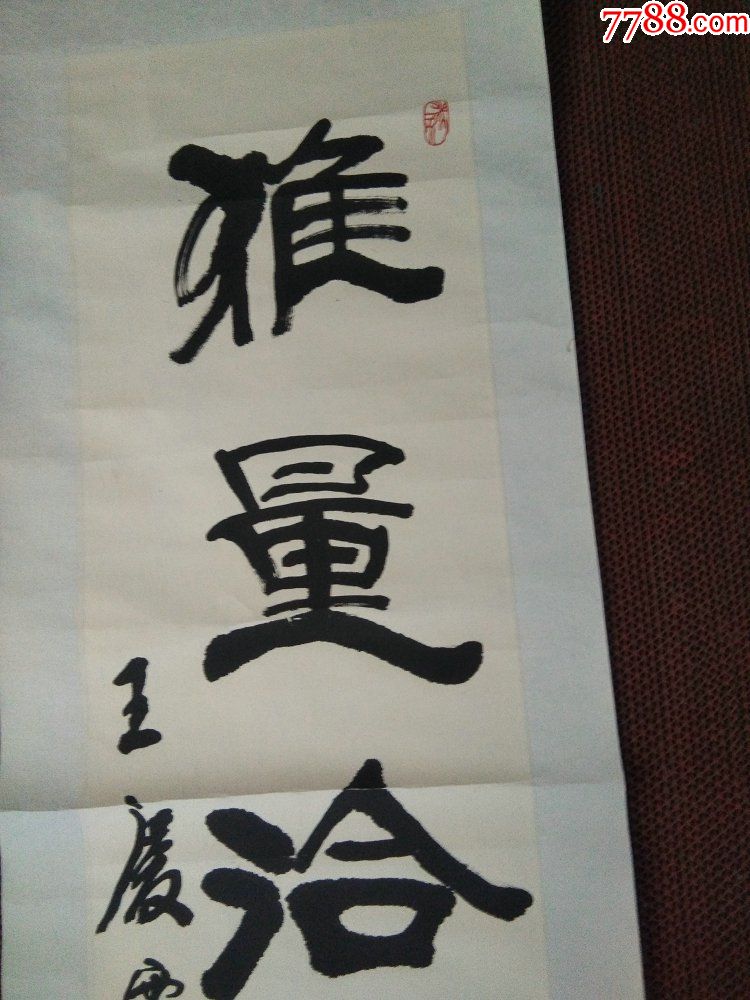 7788.com
雅量洽
王慶雲